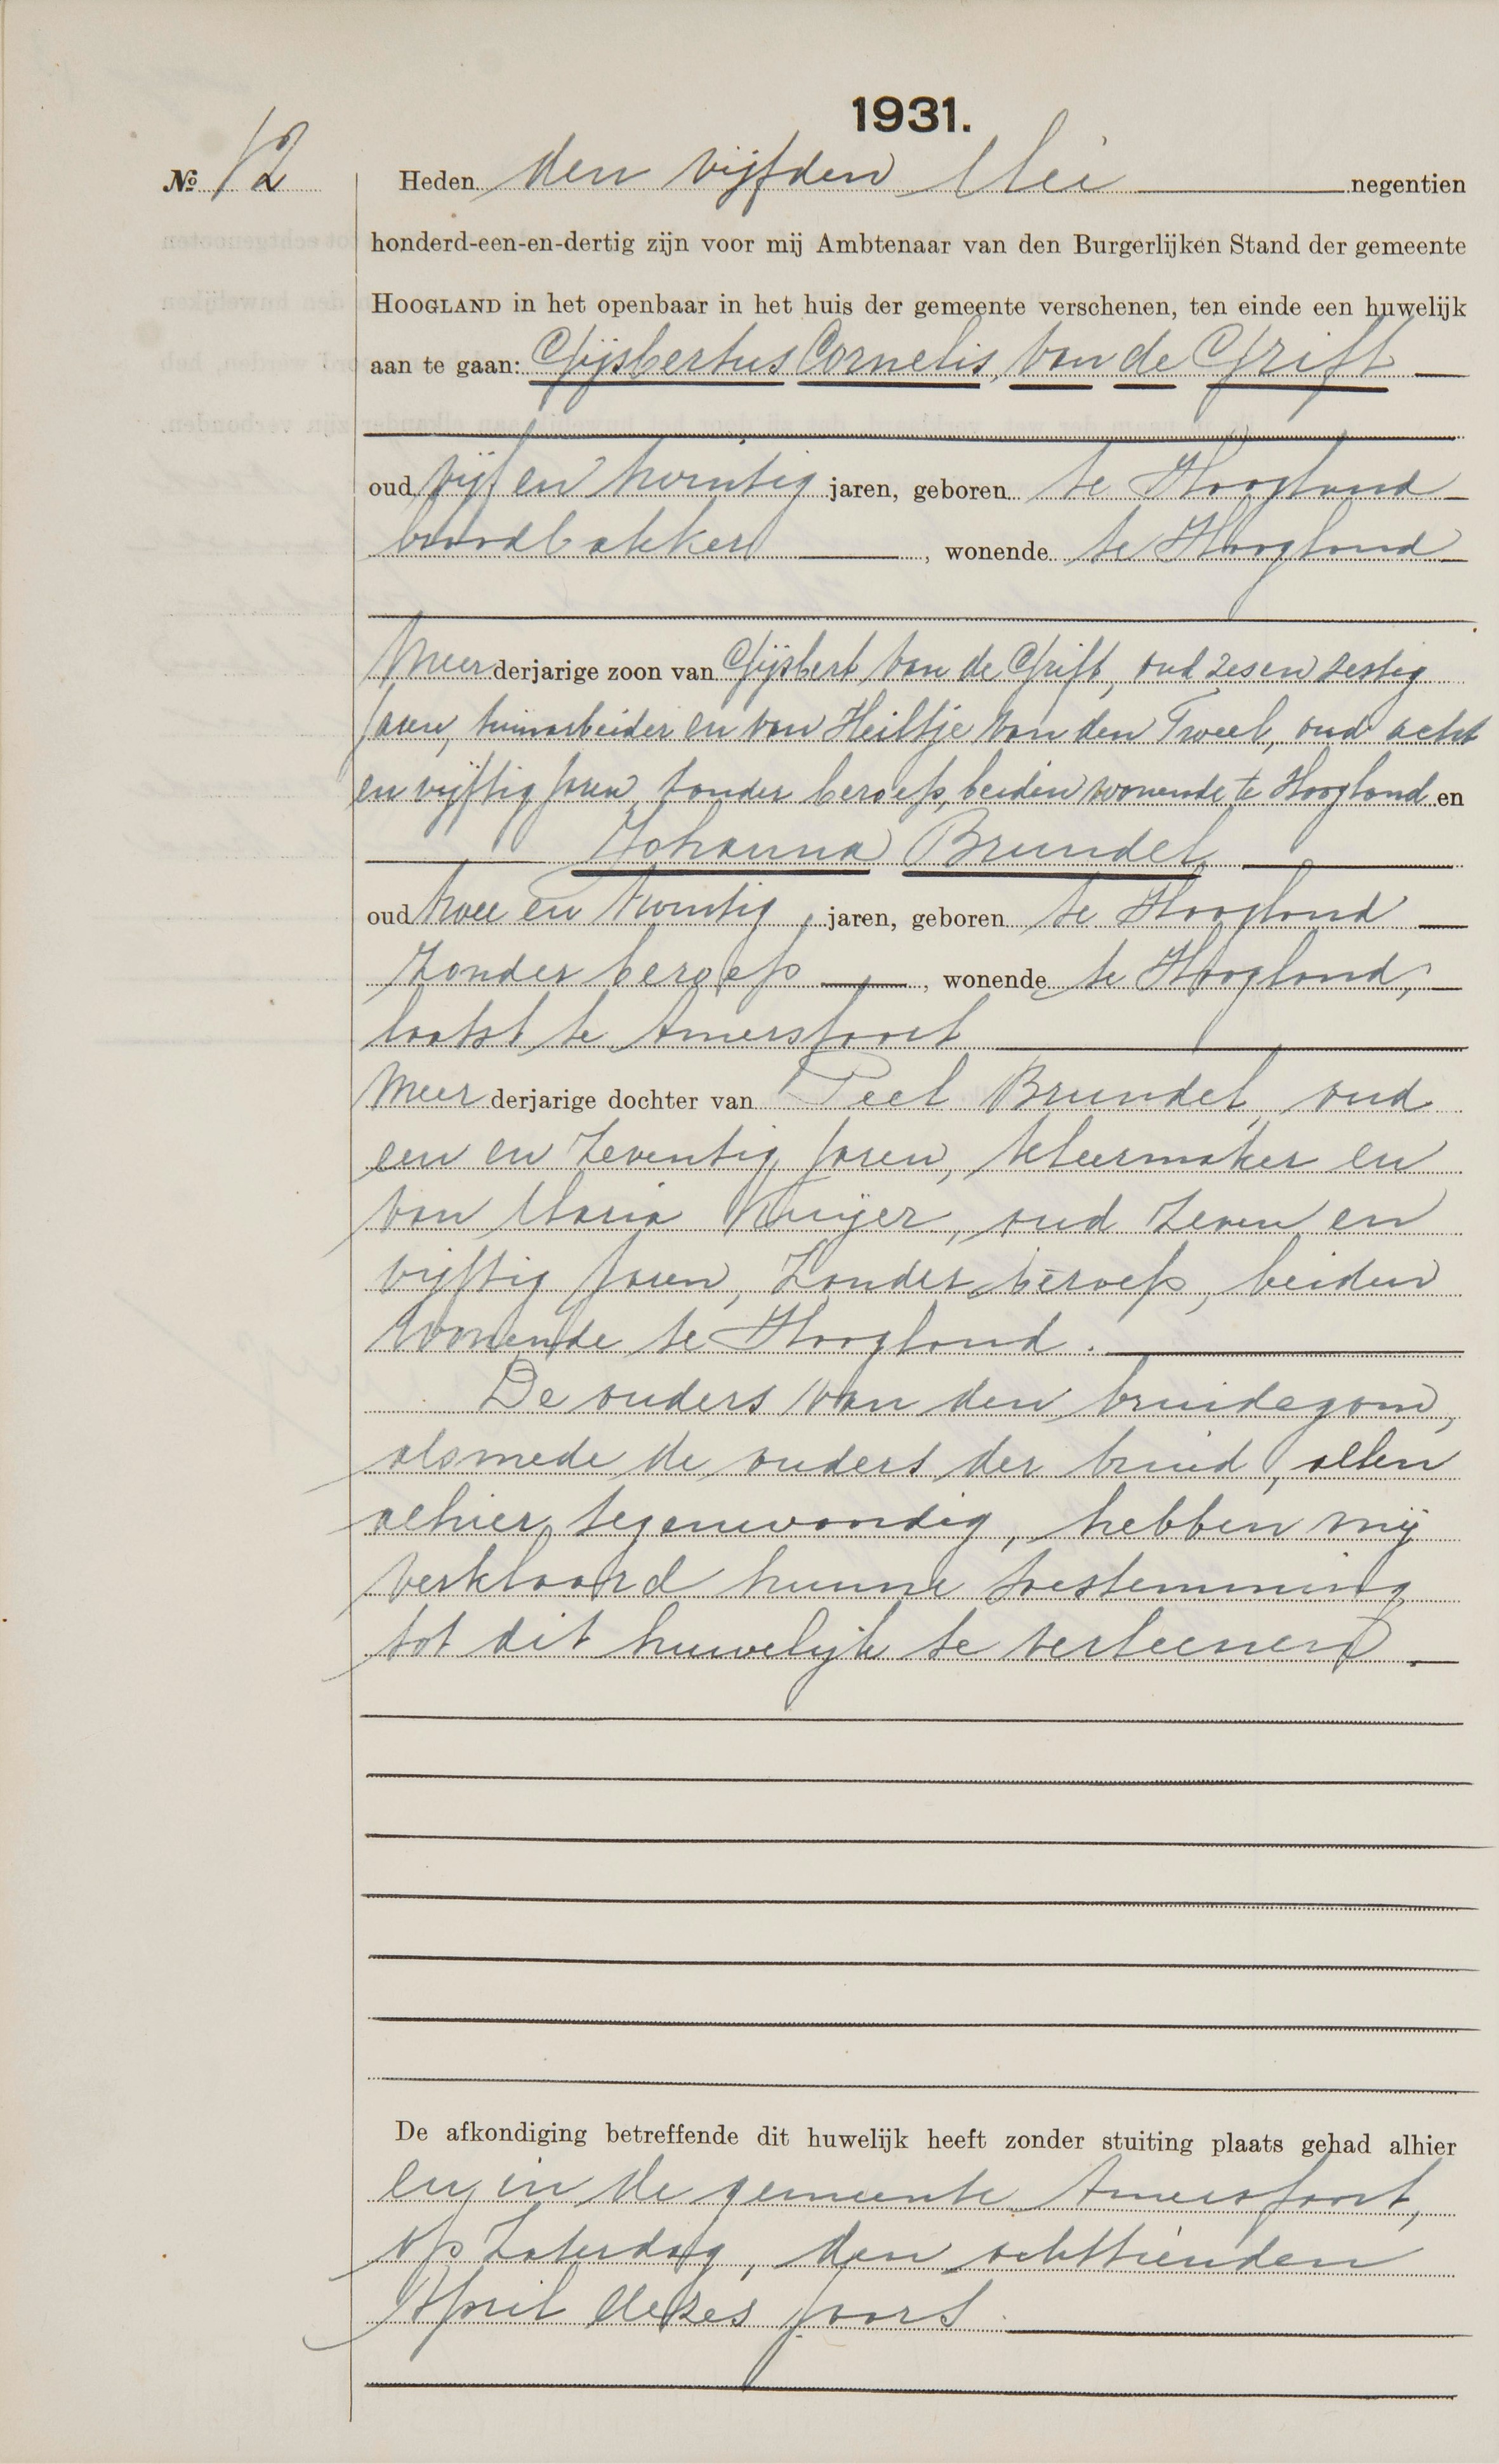 1931.
№ 12
Heden den vijfden Mei negentien
honderd-een-en-dertig zijn voor mij Ambtenaar van den Burgerlijken Stand der gemeente
HOOGLAND in het openbaar in het huis der gemeente verschenen, ten einde een huwelijk
aan te gaan: Gijsbertus Cornelis, van de Grift
oud vijf en twintig jaren, geboren te Hoogland
broodbakker, wonende te Hoogland
Meerderjarige zoon van Gijsbert van de Grift, oud zesenzestig
jaren, tuinarbeider en van Heiltje van den Tweel, oud acht
en vijftig jaren, zonder beroep, beiden wonende te Hoogland en
Johanna Brundel
oud twee en twintig, jaren, geboren te Hoogland
zonder beroep, wonende te Hoogland,
laatst te Amersfoort
Meerderjarige dochter van Peel Brundel, oud
een en zeventig jaren, kleermaker en
van Maria Kuijer, oud zeven en
vijftig jaren, zonder beroep, beiden
wonende te Hoogland.
De ouders van den bruidegom,
alsmede de ouders der bruid, allen
alhier tegenwoordig, hebben mij
verklaard hunne toestemming
tot dit huwelijk te verleenen.
De afkondiging betreffende dit huwelijk heeft zonder stuiting plaats gehad alhier
en in de gemeente Amersfoort,
op Zaterdag, den achttienden
April dezes jaars.